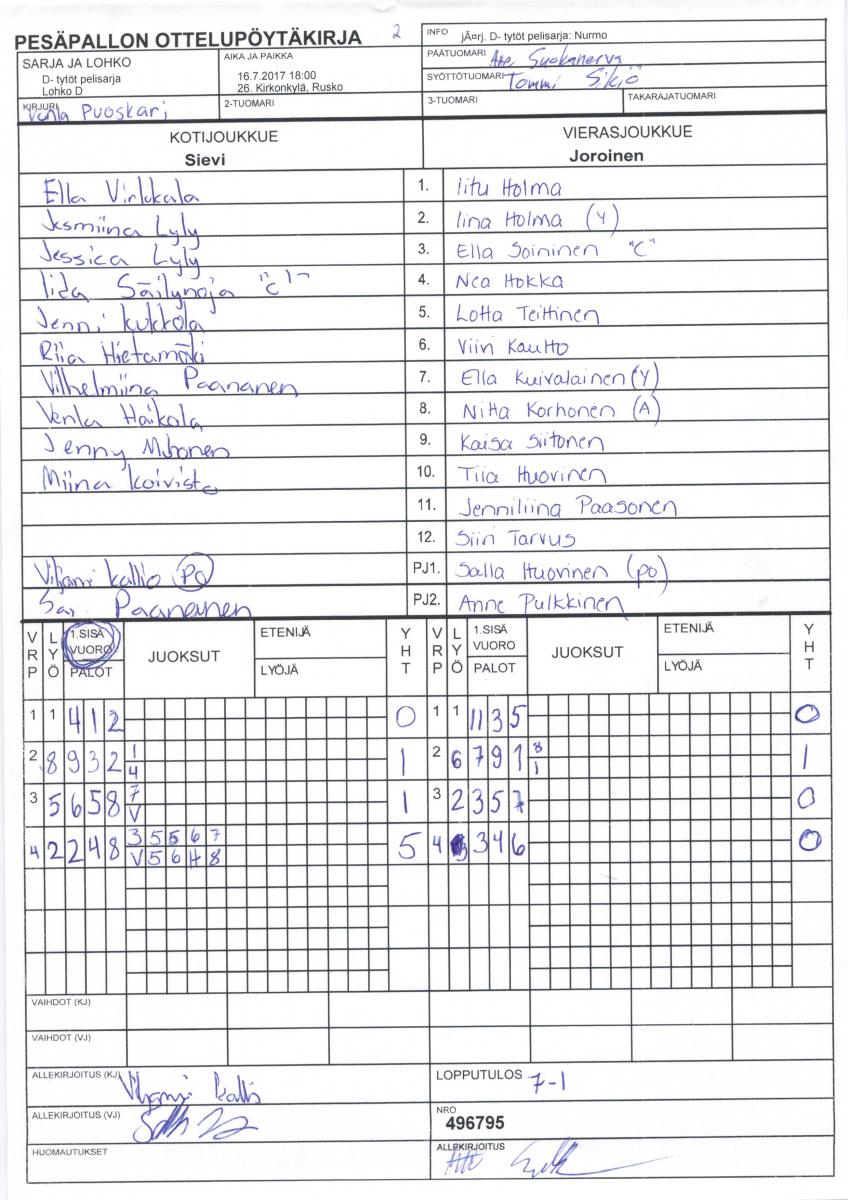 PESÄPALLON OTTELUPÖYTÄKIRJA 2
INFO jÃ¤rj. D- tytöt pelisarja: Nurmo
SARJA JA LOHKO
D- tytöt pelisarja
Lohko D
AIKA JA PAIKKA
16.7.2017 18:00
26. Kirkonkylä, Rusko
PÄÄTUOMARI
SYÖTTÖTUOMARI Tommi
KIRJURI Venla Puoskari
2-TUOMARI
3-TUOMARI
TAKARAJATUOMARI
KOTIJOUKKUE
Sievi
VIERASJOUKKUE
Joroinen
Ella Virkkala 1. Iitu Holma
Jesmiina Lyly 2. Iina Holma (Y)
Jessica Lyly 3. Ella Soininen "C"
Iida Säilynoja "C" 4. Nea Hokka
Jenni Kukkola 5. Lotta Teittinen
Riia Hietamäki 6. Viivi Kautto
Vilhelmiina Paananen 7. Ella Kuivalainen (Y)
Venla Haikola 8. Nitta Korhonen (A)
Jenny Muhonen 9. Kaisa Siitonen
Miina Koivisto 10. Tiia Huovinen
11. Jenniliina Paasonen
12. Siiri Tarvus
Viljami Kallio (PO) PJ1. Salla Huovinen (po)
Paananen PJ2. Anne Pulkkinen
VRP LYÖ 1.SISÄ VUORO PALOT JUOKSUT ETENIJÄ LYÖJÄ YHT VRP LYÖ 1.SISÄ VUORO PALOT JUOKSUT ETENIJÄ LYÖJÄ YHT
1 1 4 1 2 0 1 1 11 3 5 0
2 8 9 3 2 1 4 1 2 6 7 9 1 8 1 1
3 5 6 5 8 7 V 1 3 2 3 5 7 0
4 2 2 4 8 3 5 5 6 7 5 4 3 4 6 0
V 5 6 4 8
VAIHDOT (KJ)
VAIHDOT (VJ)
ALLEKIRJOITUS (KJ) Viljami Kallio
LOPPUTULOS 7-1
ALLEKIRJOITUS (VJ)
NRO
496795
HUOMAUTUKSET
ALLEKIRJOITUS